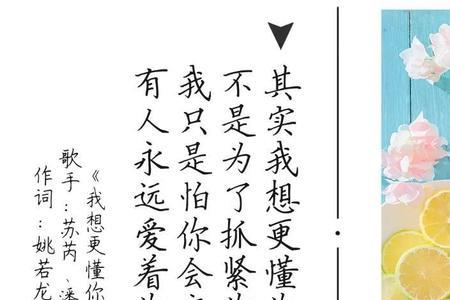 其实我想更懂
不是为了抓紧
我只是怕你会
有人永远爱着
《我想更懂你
歌手：苏芮、潘
作词：姚若龙